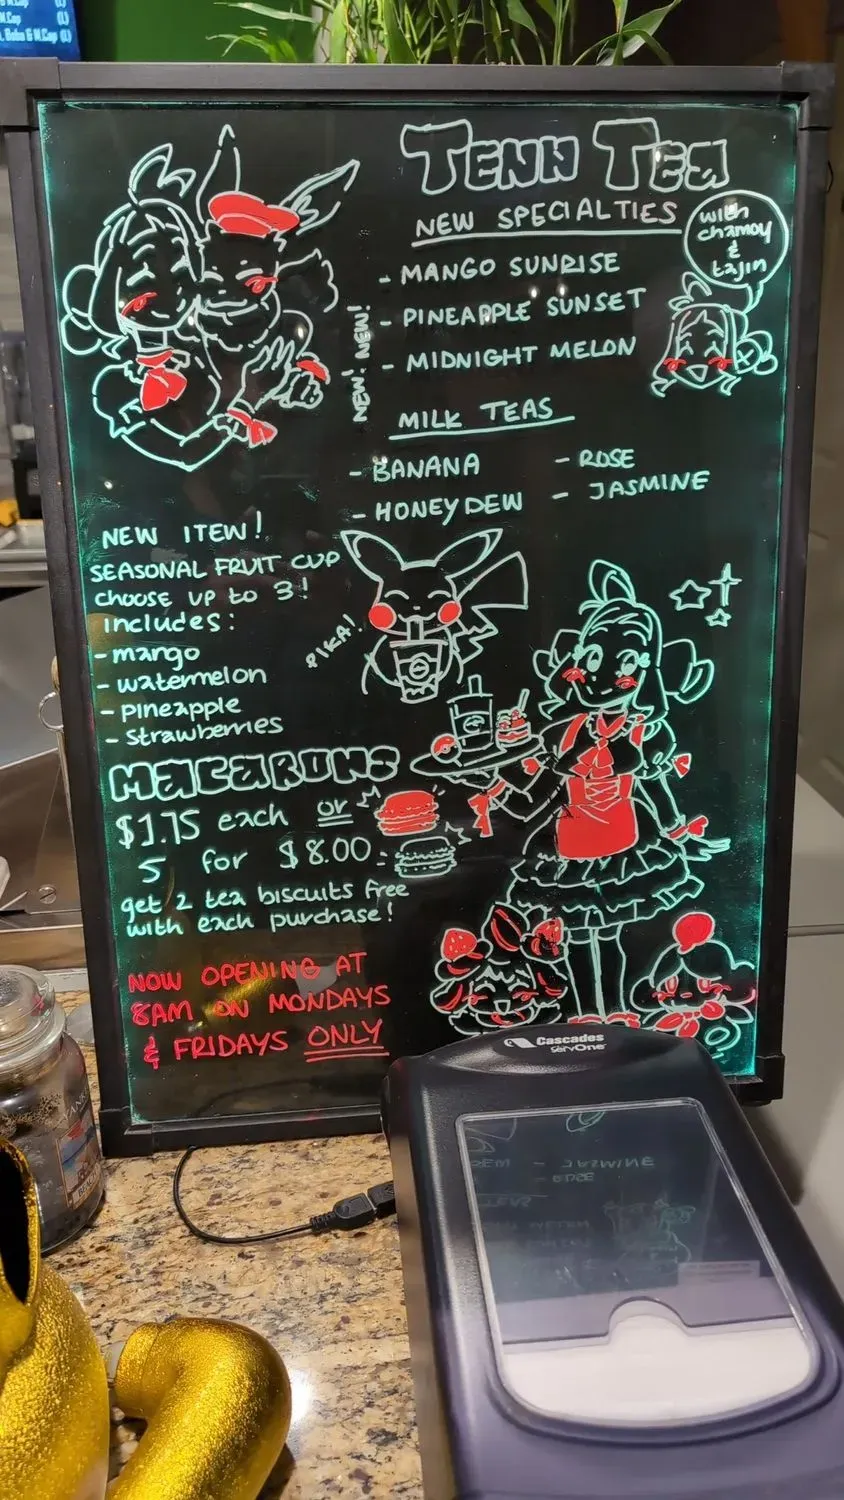 TENN TEA
NEW SPECIALTIES
with
chamoy
&
tajin
- MANGO SUNRISE
- PINEAPPLE SUNSET
- MIDNIGHT MELON
NEW! NEW!
MILK TEAS
- BANANA
- ROSE
- HONEYDEW
- JASMINE
NEW ITEM!
SEASONAL FRUIT CUP
choose up to 3!
includes:
- mango
- watermelon
- pineapple
- strawberries
PIKA!
MACARONS
$1.75 each or
5 for $8.00:
get 2 tea biscuits free
with each purchase!
NOW OPENING AT
8AM ON MONDAYS
& FRIDAYS ONLY
Cascades
ServOne